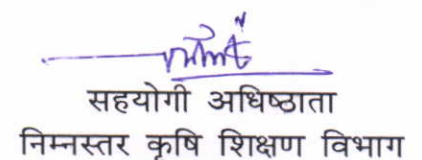 सहयोगी अधिष्ठाता
निम्नस्तर कृषि शिक्षण विभाग